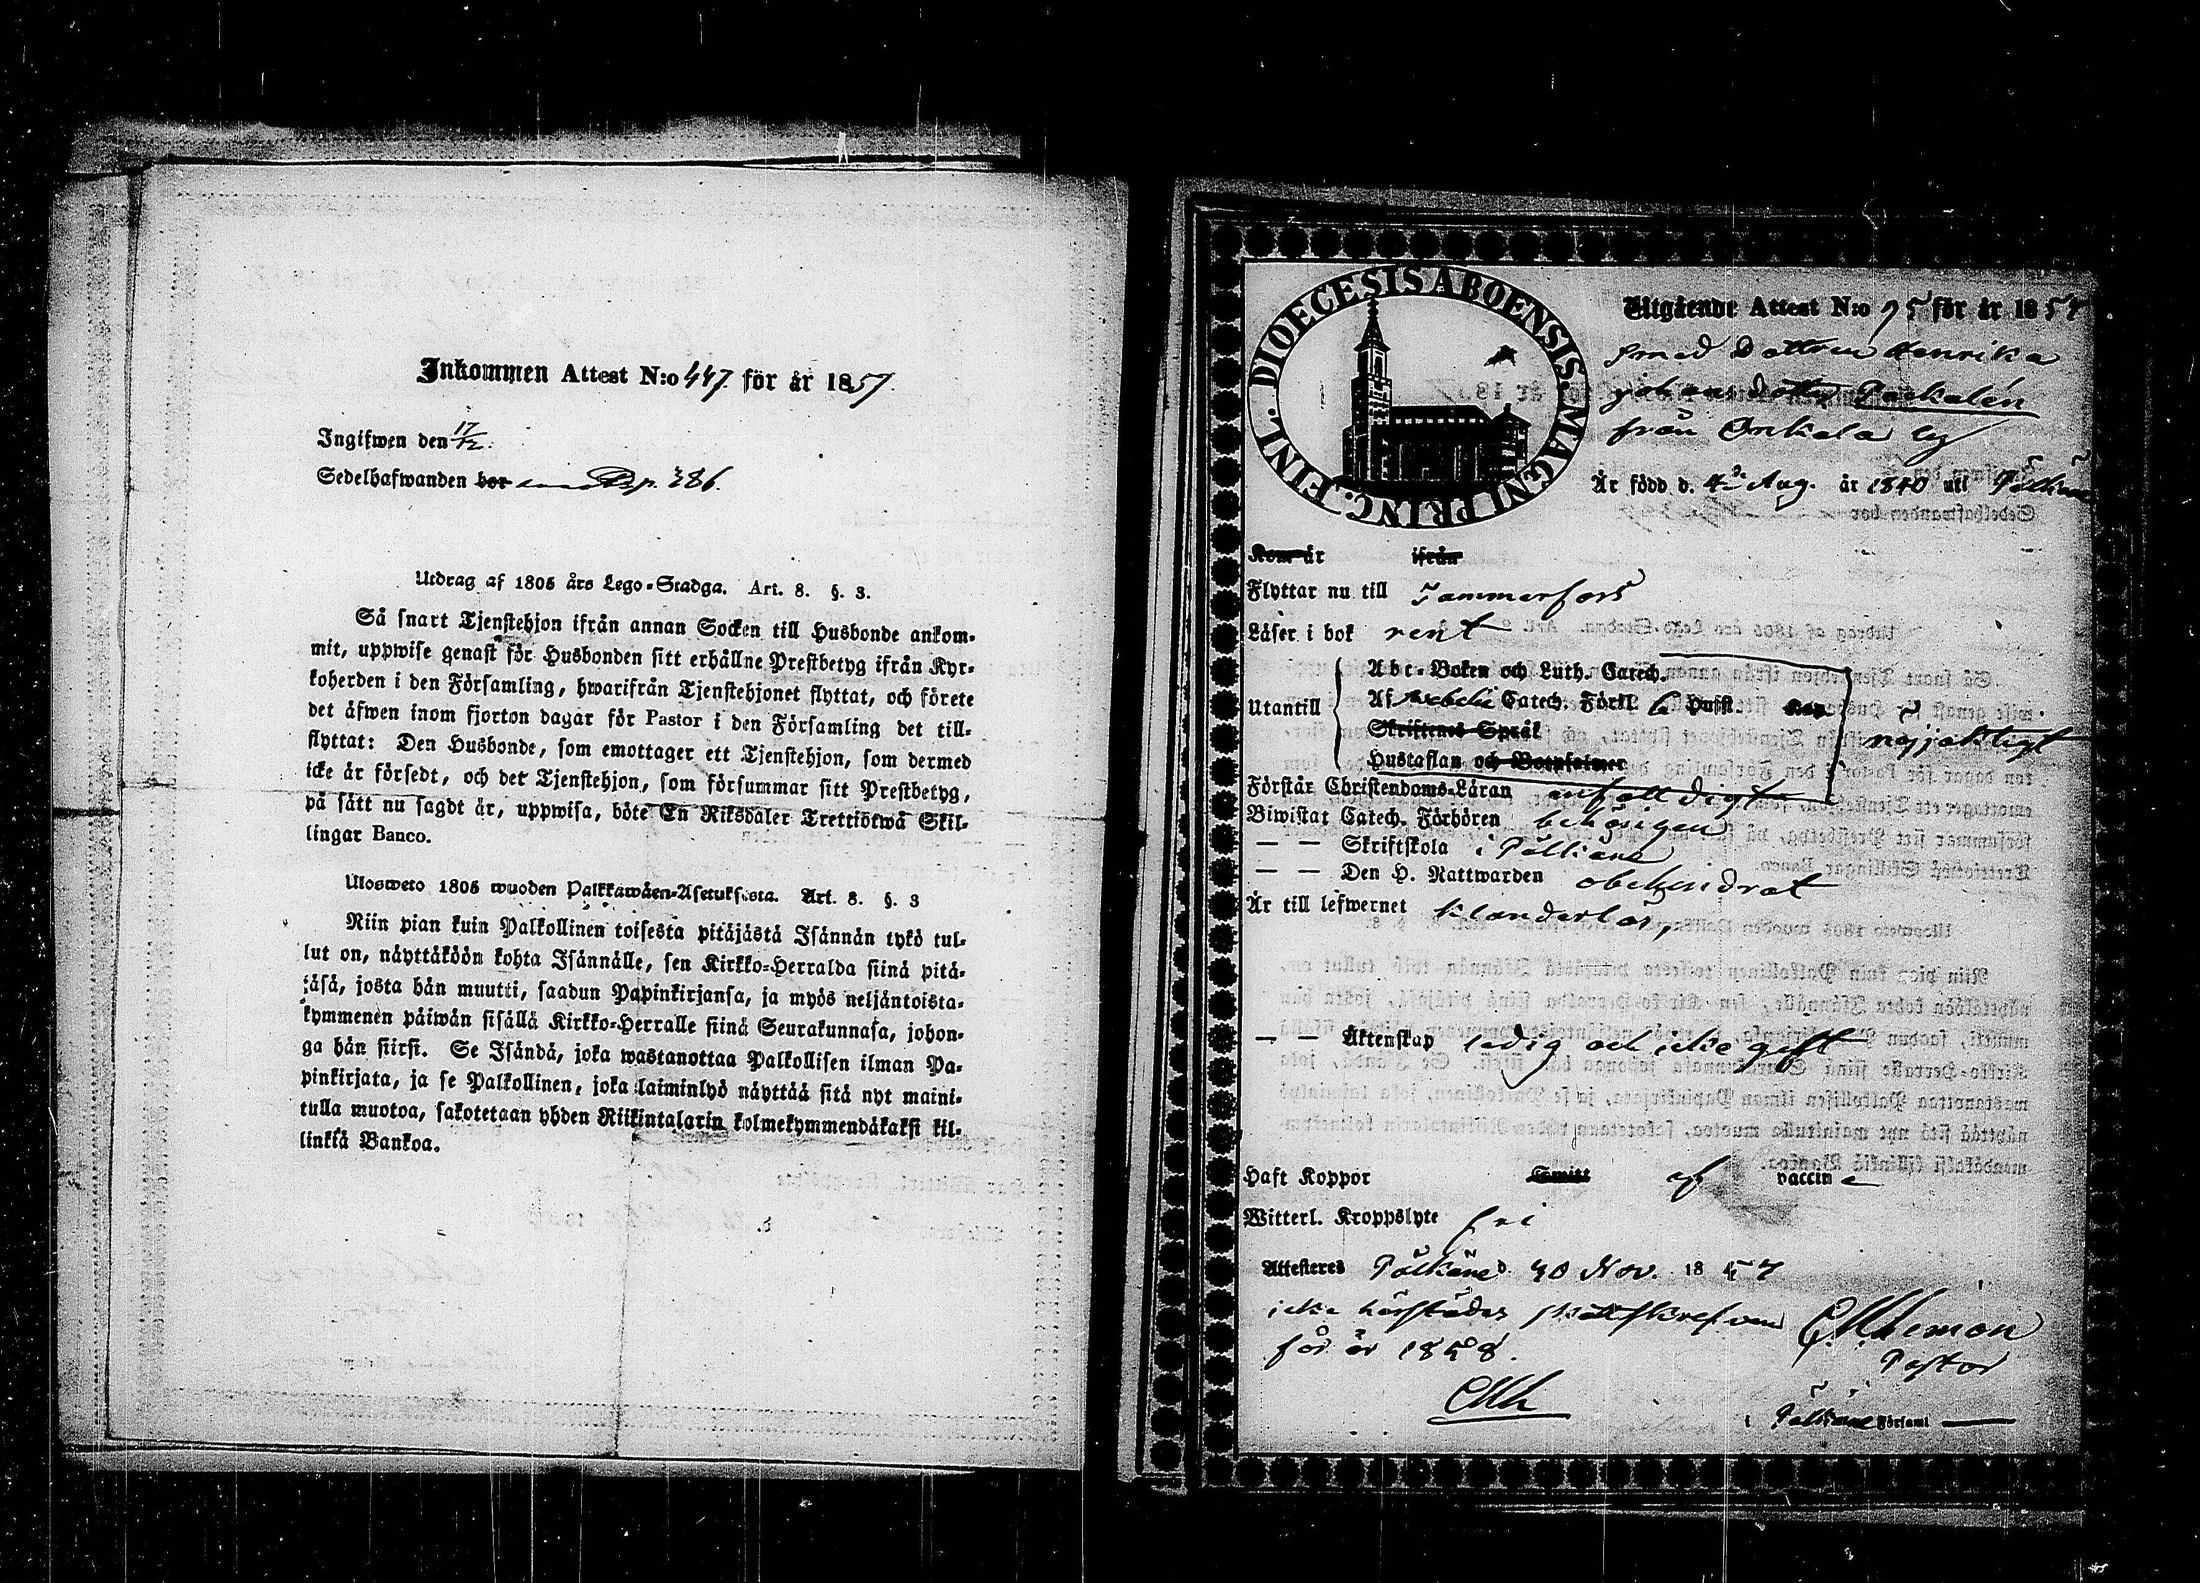 Inkommen Attest N:o 447 för år 1857.
Ingifwen den 17/12.
Sedelhafwanden bor 286.
Utdrag af 1805 års Lego-Stadga. Art. 8. §. 3.
Så snart Tjenstehjon ifrån annan Socken till Husbonde ankom-
mit, uppwise genast för Husbonden sitt erhållne Prestbetyg ifrån Kyr-
koherden i den Församling, hwarifrån Tjenstehjonet flyttat, och förete
det äfwen inom fjorton dagar för Pastor i den Församling det till-
flyttat: Den Husbonde, som emottager ett Tjenstehjon, som dermed
icke är försedt, och det Tjenstehjon, som försummar sitt Prestbetyg,
på sätt nu sagdt är, uppwisa, böte En Riksdaler Trettiotwå Skil-
lingar Banco.
Ulosweto 1805 wuoden Palkkawäen-Asetuksesta. Art. 8. §. 3
Niin pian kuin Palkollinen toisesta pitäjästä Isännän tykö tul-
lut on, näyttäköön kohta Isännälle, sen Kirkko-Herralda siinä pitä-
jäsä, josta hän muutti, saadun Papinkirjansa, ja myös neljäntoista-
kymmenen päiwän sisällä Kirkko-Herralle siinä Seurakunnasa, johon-
ga hän siirsi. Se Isändä, joka wastanottaa Palkollisen ilman Pa-
pinkirjata, ja se Palkollinen, joka laiminlyö näyttää sitä nyt maini-
tulla muotoa, sakotetaan yhden Riikintalarin kolmekymmendäkaksi kil-
linkiä Bankoa.
DIOECESIS ABOENSIS. MAGNI PRINC. FINL.
Utgående Attest N:o 95 för år 1857
Smed Dottren Henrika
Johansdotter Packalén
från Onkala by
Är född d. 4 Aug. år 1840 uti Pälkäne
Kom år ifrån
Flyttar nu till Tammerfors
Läser i bok rent
Utantill
Abc-Boken och Luth. Catech.
Af Catech. Förkl. Husst.
Skriftenes Språk
Hustaflan och Botpsalmer
nöjjaktigt
Förstår Christendoms-Läran enfalldigt
Biwistat Catech. Förhören behörigen
— — Skriftskola i Pälkäne
— — Den H. Nattwarden obehindrat
Är till lefwernet klanderlös,
— — Äktenskap ledig och icke gift
Haft Koppor Smitt af vaccin
Witterl. Kroppslyte fri
Attesteres Pälkäne d. 30 Nov. 1857
icke härstädes skattskrefven
för år 1858.
Pastor
i Pälkäne Församl